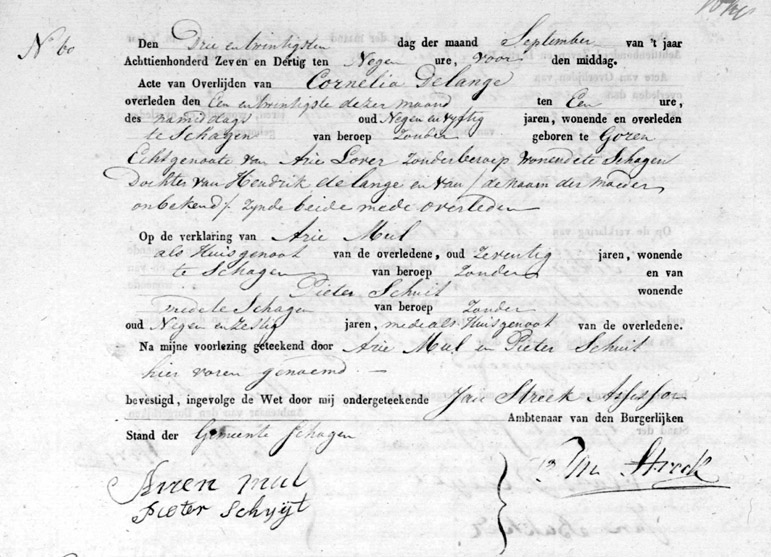 N 60
Den Drie en twintigsten dag der maand September van 't jaar
Achttienhonderd Zeven en Dertig ten Negen ure, voor den middag.
Acte van Overlijden van Cornelia De Lange
overleden den Een en twintigste dezer maand ten Een ure,
des namiddags oud Negen en vyftig jaren, wonende en overleden
te Schagen van beroep Zonder geboren te
Echtgenoote van Arie Lover Zonder beroep wonende te Schagen
Dochter van Hendrik de Lange en van / de naam der moeder
onbekend / Zynde beide mede overleden
Op de verklaring van Arie Mul
als Huisgenoot van de overledene, oud Zeventig jaren, wonende
te Schagen van beroep Zonder en van
Pieter Schuit wonende
mede te Schagen van beroep Zonder
oud Negen en Zestig jaren, mede als Huisgenoot van de overledene.
Na mijne voorlezing geteekend door Arie Mul en Pieter Schuit
hier voren genoemd
bevestigd, ingevolge de Wet door mij ondergeteekende Jan Streek Assessor
Ambtenaar van den Burgerlijken
Stand der Gemeente Schagen
Arien mul
Pieter Schuyt
Streek